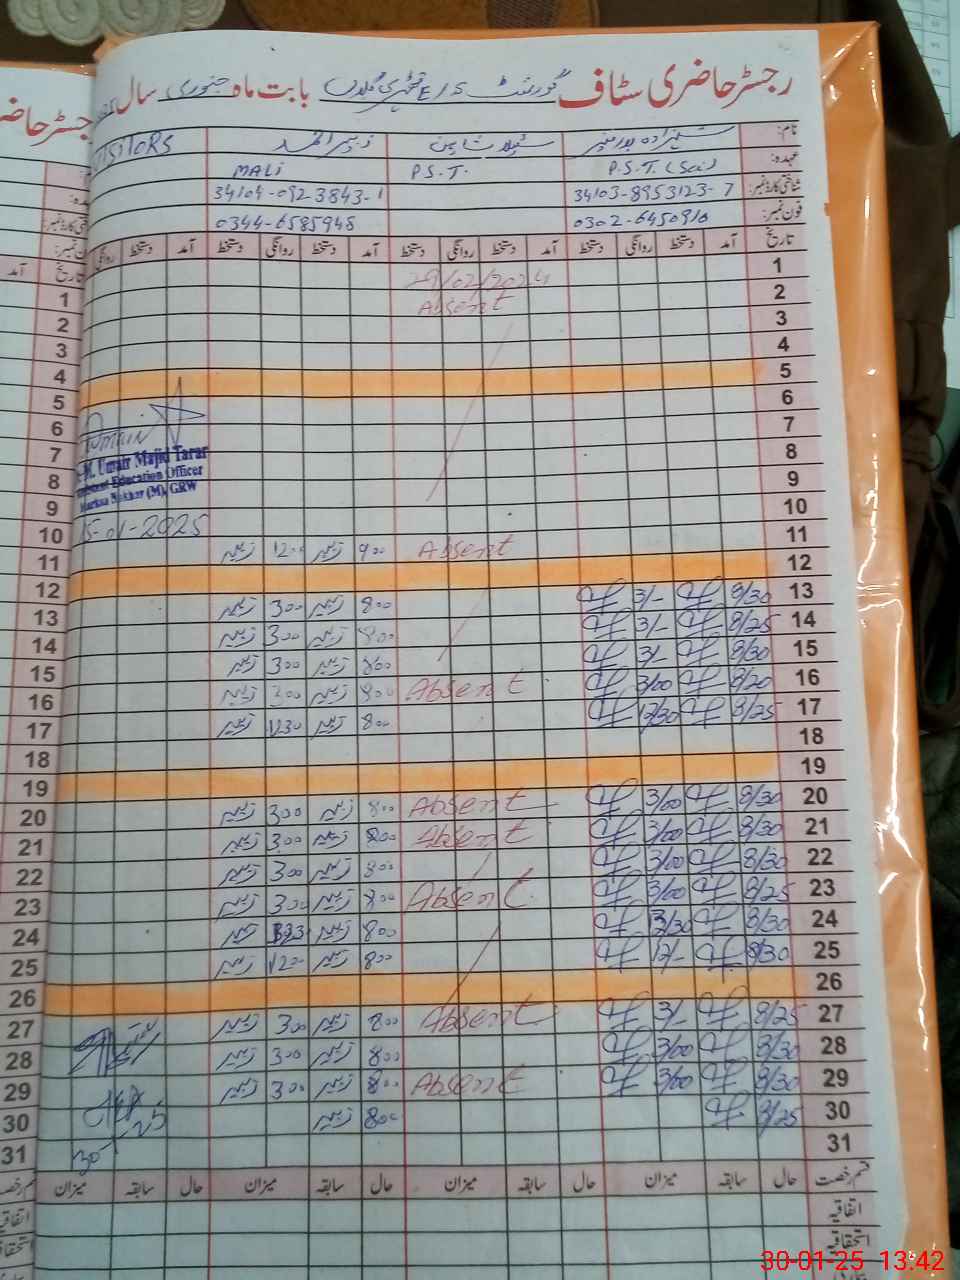 رجسٹر حاضری سٹاف گورنمنٹ بابت ماہ جنوری سال
نام:
زبیر احمد
VISITORS
عہدہ: P.S.T. (Sci)
P.S.T.
MALI
شناختی کارڈ نمبر: 34103-8953123-7
34104-0923843-1
فون نمبر: 0302-6450910
0344-6585945
تاریخ آمد دستخط روانگی دستخط آمد دستخط روانگی دستخط آمد دستخط روانگی دستخط آمد دستخط روانگی
1 29/02/2024
2 Absent
3
4
5
6
7
8
M. Umair Majid Tarar
Assistant Education Officer
(M), GRW
9
10
15-01-2025
11 Absent 900 زبیر 1200 زبیر
12
13 8/30 3/- 800 زبیر 300 زبیر
14 8/25 3/- 800 زبیر 300 زبیر
15 8/30 3/- 800 زبیر 300 زبیر
16 8/20 3/00 Absent 800 زبیر 300 زبیر
17 8/25 12/30 800 زبیر 1230 زبیر
18
19
20 8/30 3/00 Absent 800 زبیر 300 زبیر
21 8/30 3/00 Absent 800 زبیر 300 زبیر
22 8/30 3/00 800 زبیر 300 زبیر
23 8/25 3/00 Absent 800 زبیر 300 زبیر
24 8/30 800 زبیر زبیر
25 8/30 12/- 800 زبیر 1200 زبیر
26
27 8/25 3/- Absent 800 زبیر 300 زبیر
28 8/30 3/00 800 زبیر 300 زبیر
29 8/30 3/00 Absent 800 زبیر 300 زبیر
30 8/25 800 زبیر
31
قسم رخصت حال سابقہ میزان حال سابقہ میزان حال سابقہ میزان حال سابقہ میزان
اتفاقیہ
استحقاقیہ
رجسٹر حاضر
آمد تاریخ
1
2
3
4
5
6
7
8
9
10
11
12
13
14
15
16
17
18
19
20
21
22
23
24
25
26
27
28
29
30
31
اتفاقیہ
30-01-25 13:42